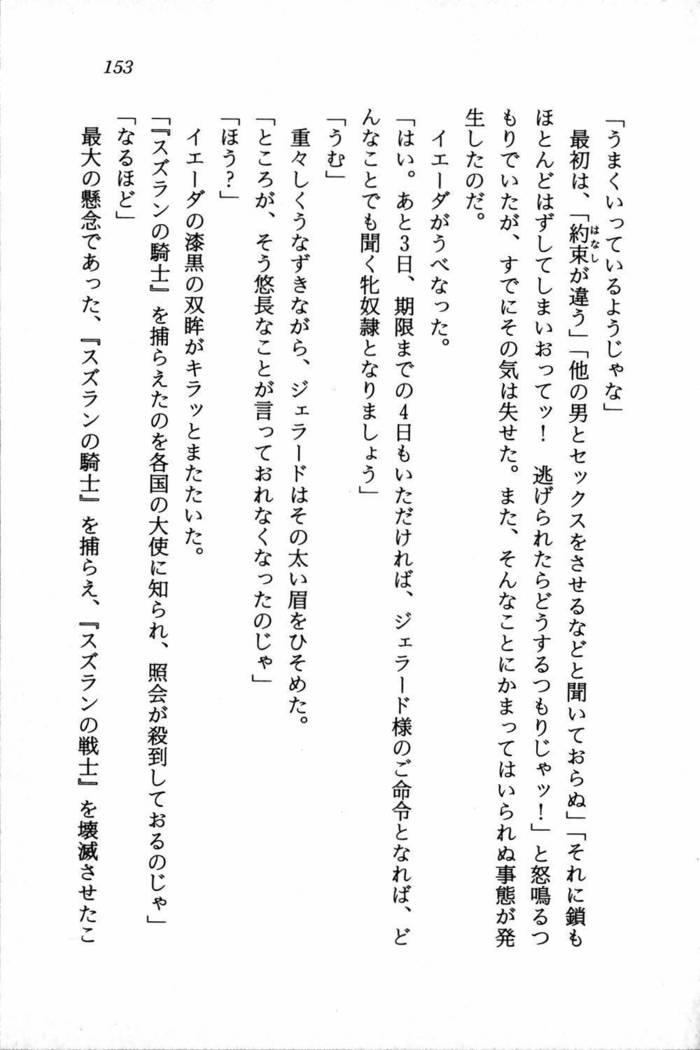 153
「うまくいっているようじゃな」
最初は、「約束が違う」「他の男とセックスをさせるなどと聞いておらぬ」「それに鎖も
はなし
ほとんどはずしてしまいおってッ！　逃げられたらどうするつもりじゃッ！」と怒鳴るつ
もりでいたが、すでにその気は失せた。また、そんなことにかまってはいられぬ事態が発
生したのだ。
イエーダがうべなった。
「はい。あと3日、期限までの4日もいただければ、ジェラード様のご命令となれば、ど
んなことでも聞く牝奴隷となりましょう」
「うむ」
重々しくうなずきながら、ジェラードはその太い眉をひそめた。
「ところが、そう悠長なことが言っておれなくなったのじゃ」
「ほう？」
イエーダの漆黒の双眸がキラッとまたたいた。
「『スズランの騎士』を捕らえたのを各国の大使に知られ、照会が殺到しておるのじゃ」
「なるほど」
最大の懸念であった、『スズランの騎士』を捕らえ、『スズランの戦士』を壊滅させたこ